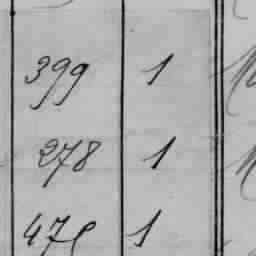 399 1
278 1
1